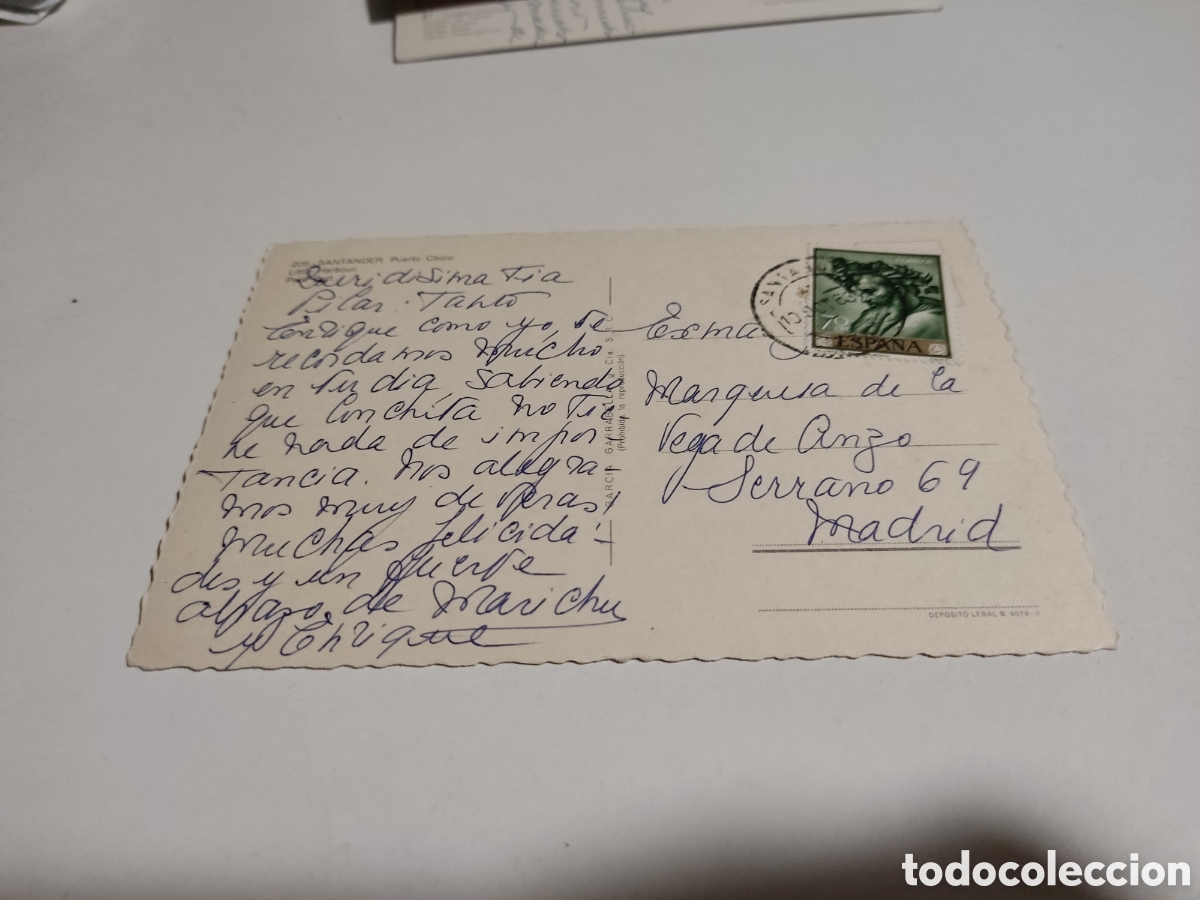 205 - SANTANDER. Puerto Chico.
Harbour
Queridisima Tia
Pilar: Tanto
Enrique como yo, te
recordamos mucho
en tu dia Sabiendo
que Conchita no Tie
ne nada de impor
tancia. Nos alegra-
mos muy de veras,
muchas felicida-
des y un fuerte
abrazo, de Marichu
y Enrique
GARCIA GARRABELLA Y Cia. S. R. C.
(Prohibida la reproducción)
RIBERA
70
ESPAÑA
Exma
Marquesa de la
Vega de Anzo
Serrano 69
Madrid
DEPOSITO LEGAL B. 4076
todocoleccion